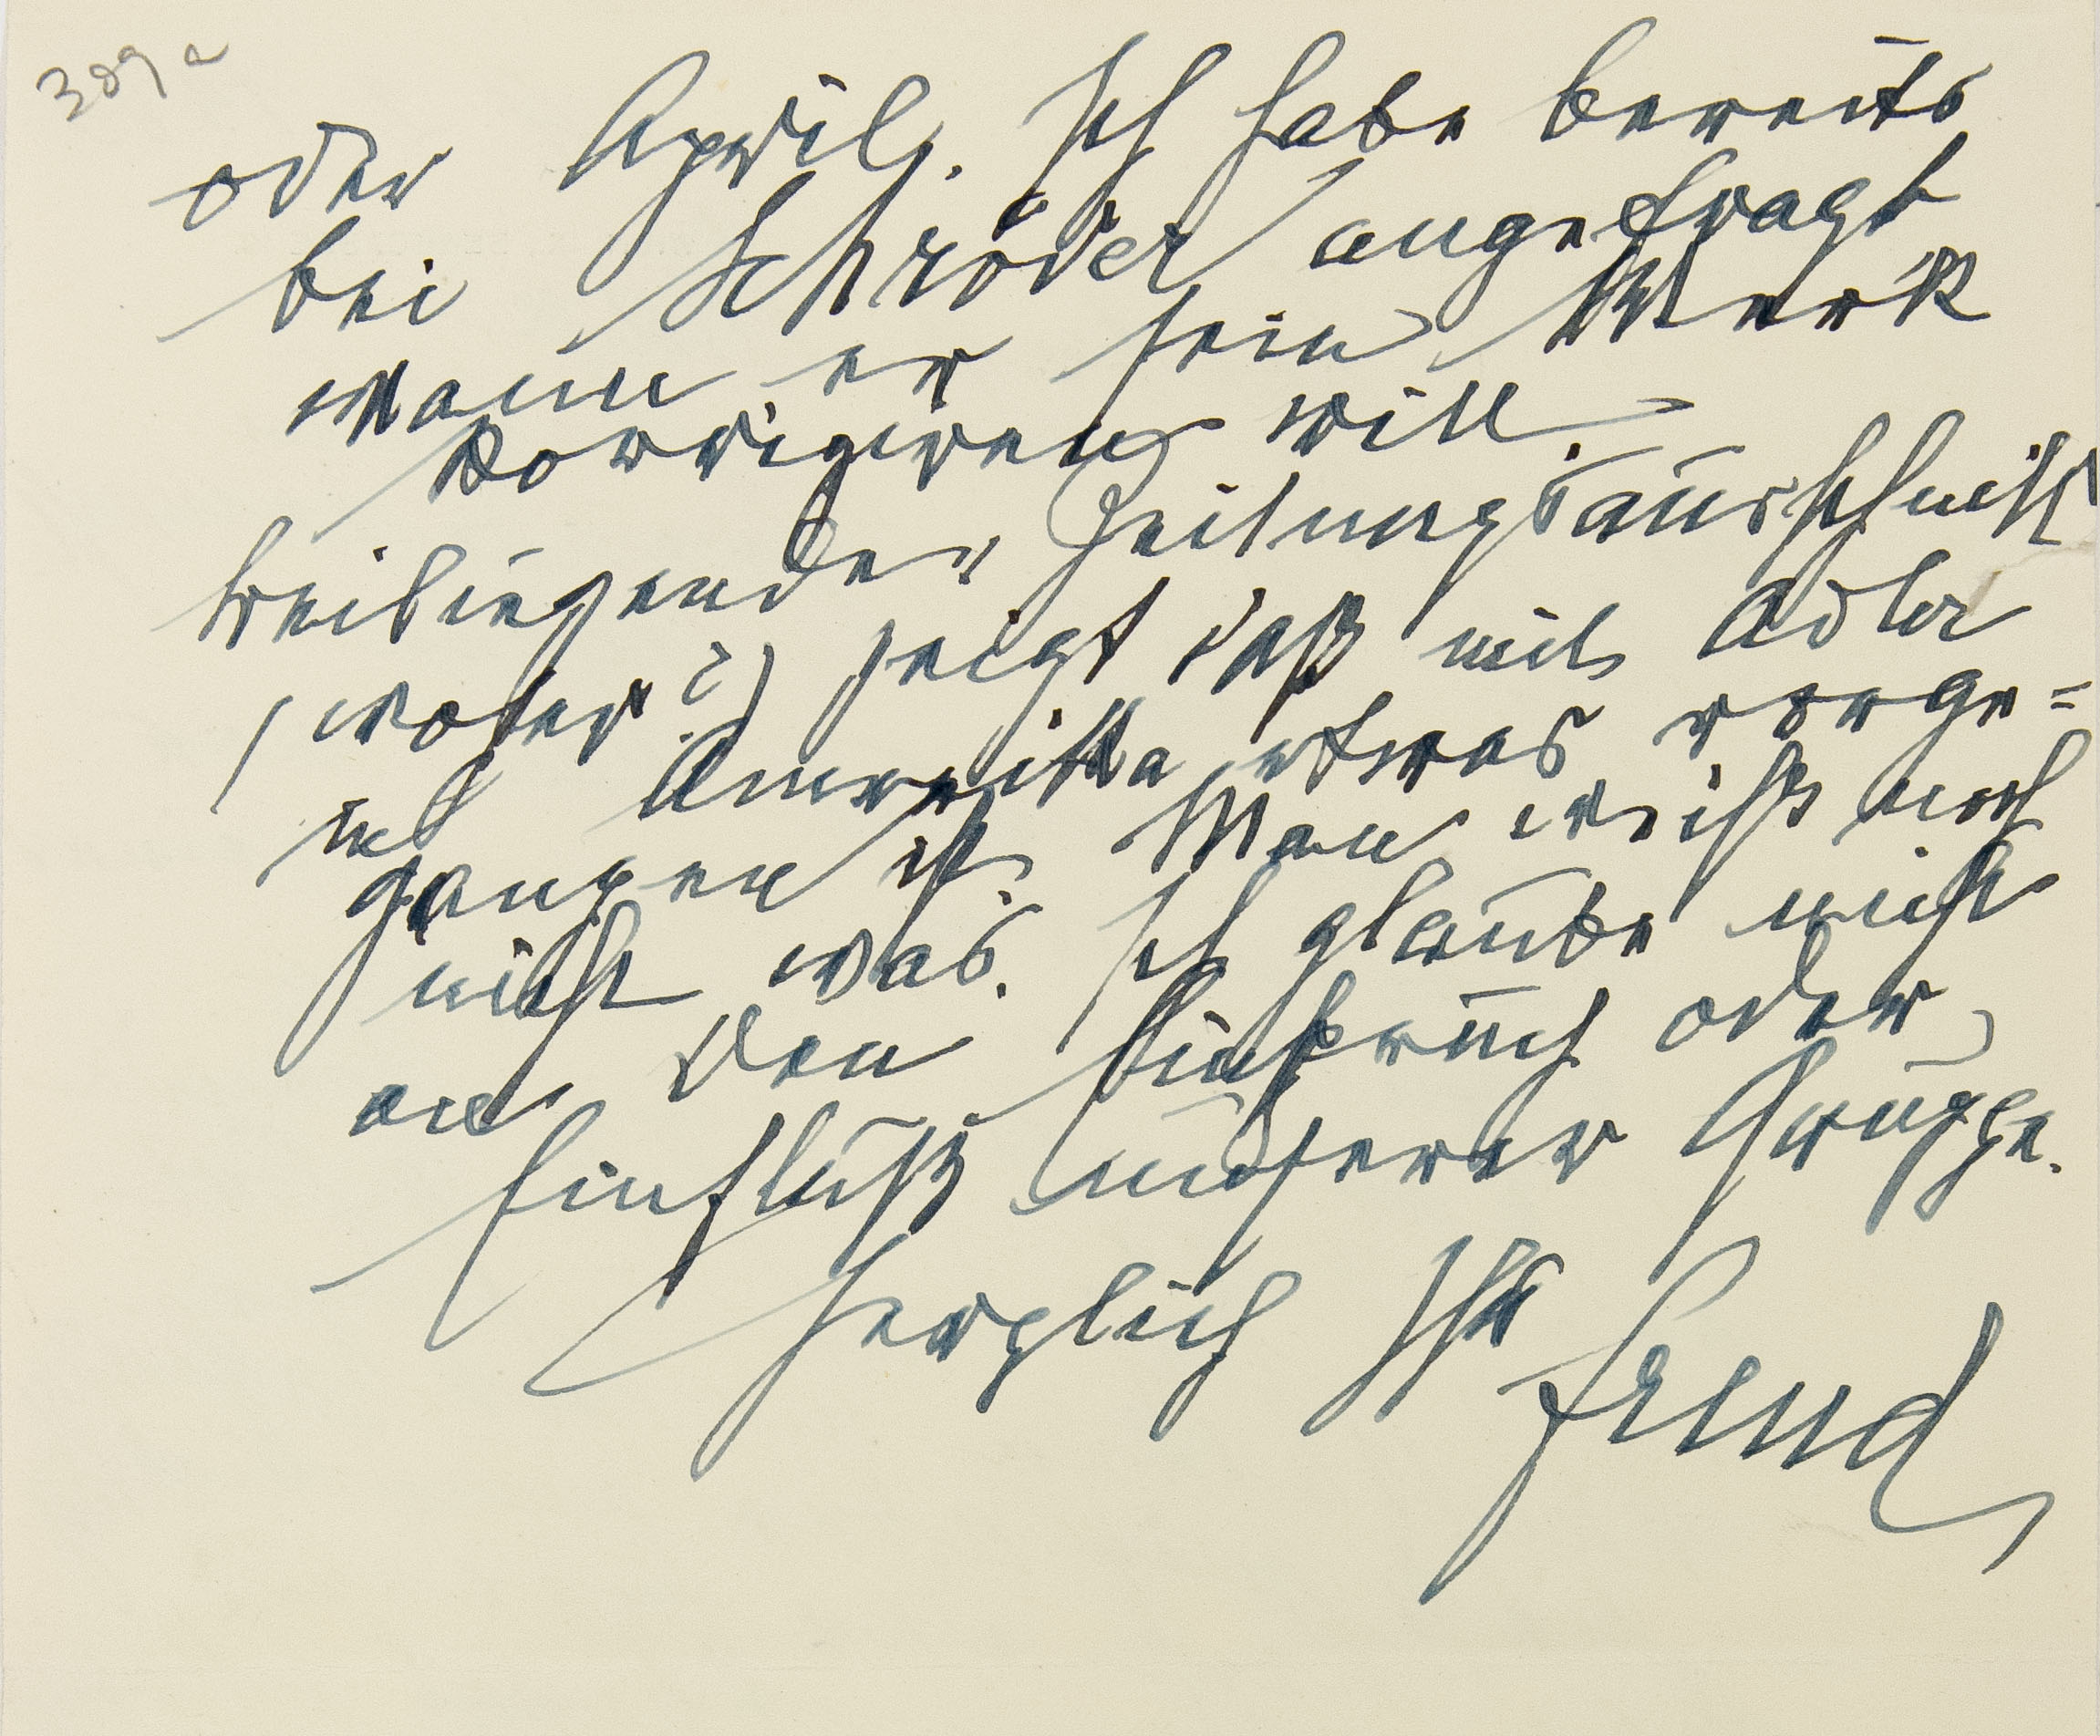 309 a
oder April. Ich habe bereits
bei Schröder angefragt
wann er sein Werk
korrigiren will.
beiliegender Zeitungsausschnitt
(woher?) zeigt daß mit Adler
in Amerika etwas vorge=
gangen ist. Man weiß noch
nicht was. Ich glaube nicht
an den Einbruch oder
Einfluß unserer Gruppe.
herzlich Ihr
Freud